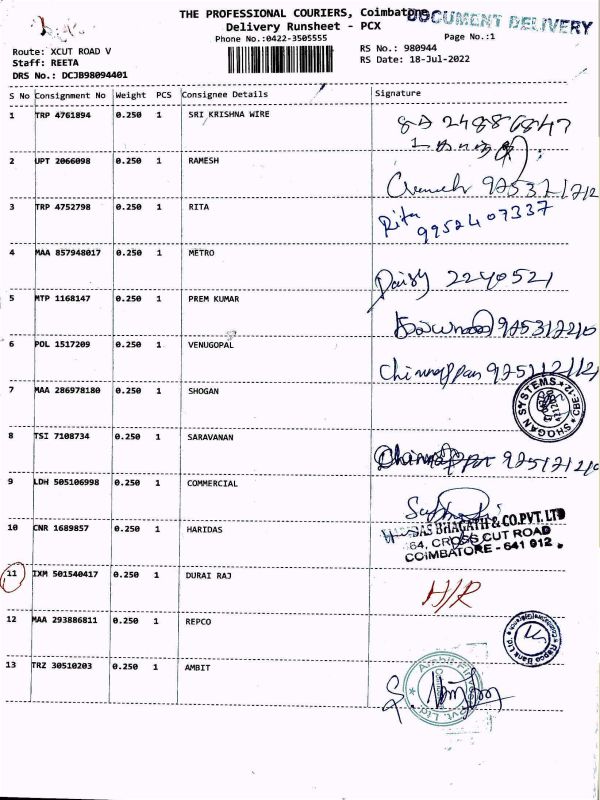 THE PROFESSIONAL COURIERS, Coimbatore
DOCUMENT DELIVERY
Delivery Runsheet - PCX
Phone No.:0422-3505555
Page No.:1
Route: XCUT ROAD V
RS No.: 980944
Staff: REETA
RS Date: 18-Jul-2022
DRS No.: DCJB98094401
S No Consignment No Weight PCS Consignee Details Signature
1 TRP 4761894 0.250 1 SRI KRISHNA WIRE
2 UPT 2066098 0.250 1 RAMESH
3 TRP 4752798 0.250 1 RITA Rita
9952407337
4 MAA 857948017 0.250 1 METRO Daisy 2240521
5 MTP 1168147 0.250 1 PREM KUMAR
6 POL 1517209 0.250 1 VENUGOPAL Chinnappan
7 MAA 286978180 0.250 1 SHOGAN SHOGAN SYSTEMS * CBE-12 *
8 TSI 7108734 0.250 1 SARAVANAN
9 LDH 505106998 0.250 1 COMMERCIAL
10 CNR 1689857 0.250 1 HARIDAS
DAS BHAGATH & CO.PVT. LTD
64, CROSS CUT ROAD
COIMBATORE - 641 012.
11 IXM 501540417 0.250 1 DURAI RAJ H/R
12 MAA 293886811 0.250 1 REPCO Repco Bank Ltd.
13 TRZ 30510203 0.250 1 AMBIT Ambit Pvt. Ltd.